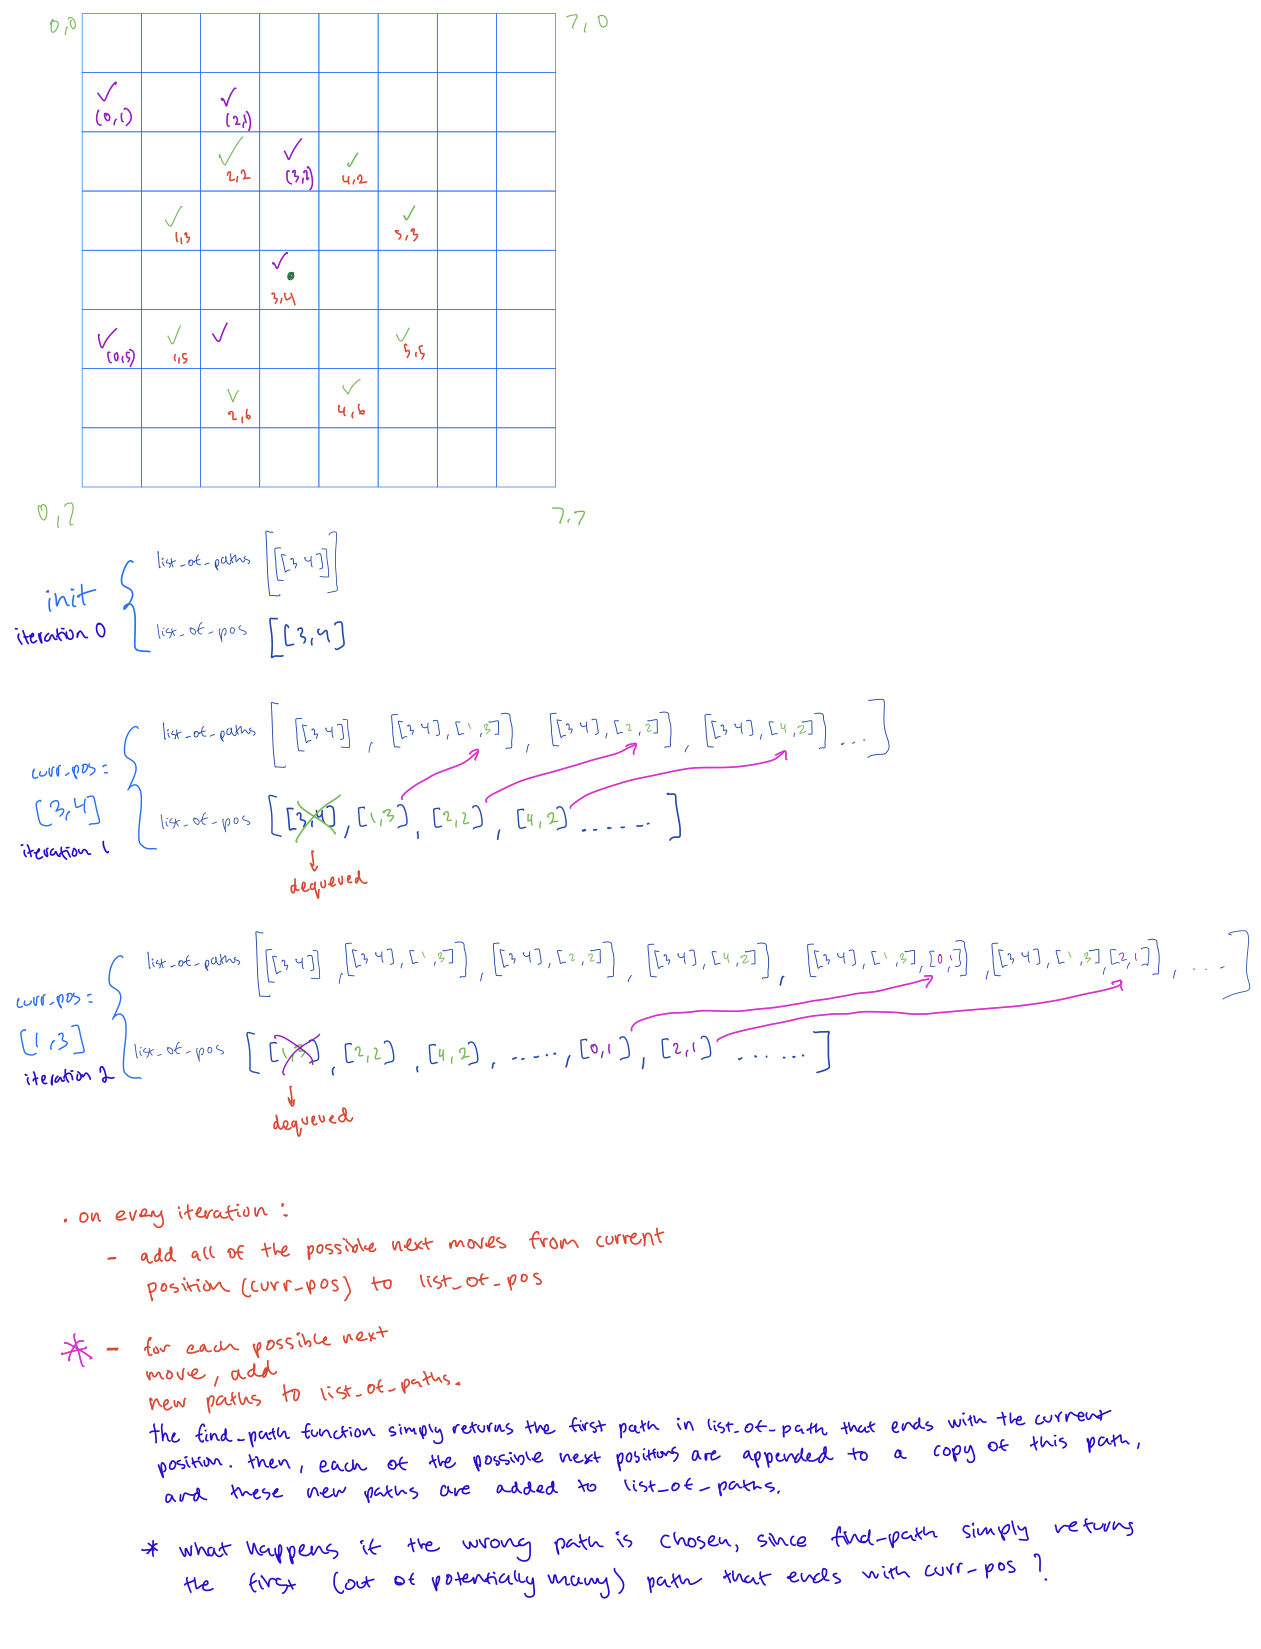 0,0
7,0
(0,1)
(2,1)
2,2
(3,2)
4,2
1,3
5,3
3,4
(0,5)
1,5
5,5
2,6
4,6
0,7
7,7
init
iteration 0
list_of_paths [[[3 4]]]
list_of_pos [[3,4]
curr_pos =
[3,4]
iteration 1
list_of_paths [ [[3 4]], [[3 4],[1,3]], [[3 4],[2,2]], [[3 4],[4,2]] ... ]
list_of_pos [[3,4], [1,3], [2,2], [4,2] ...... ]
dequeued
curr_pos =
[1,3]
iteration 2
list_of_paths [[[3 4]], [[3 4],[1,3]], [[3 4],[2,2]], [[3 4],[4,2]], [[3 4],[1,3],[0,1]], [[3 4],[1,3],[2,1]], .... ]
list_of_pos [ [1,3], [2,2], [4,2], ......, [0,1], [2,1] ...... ]
dequeued
. on every iteration :
- add all of the possible next moves from current
position (curr_pos) to list_of_pos
* - for each possible next
move, add
new paths to list_of_paths.
the find_path function simply returns the first path in list_of_path that ends with the current
position. then, each of the possible next positions are appended to a copy of this path,
and these new paths are added to list_of_paths.
* what happens if the wrong path is chosen, since find-path simply returns
the first (out of potentially many) path that ends with curr-pos ?